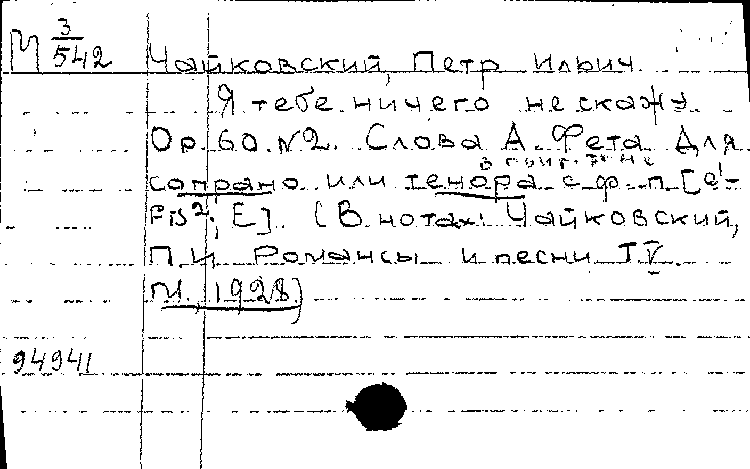 М 3/542 Чайковский, Петр Ильич
Я тебе ничего не скажу
Op. 60. №2. Слова А. Фета Для
сопрано или тенора с ф-п. [e¹-
Fis²; E]. (В нотах: Чайковский,
П.И. Романсы и песни Т. V.
М., 1928)
94941